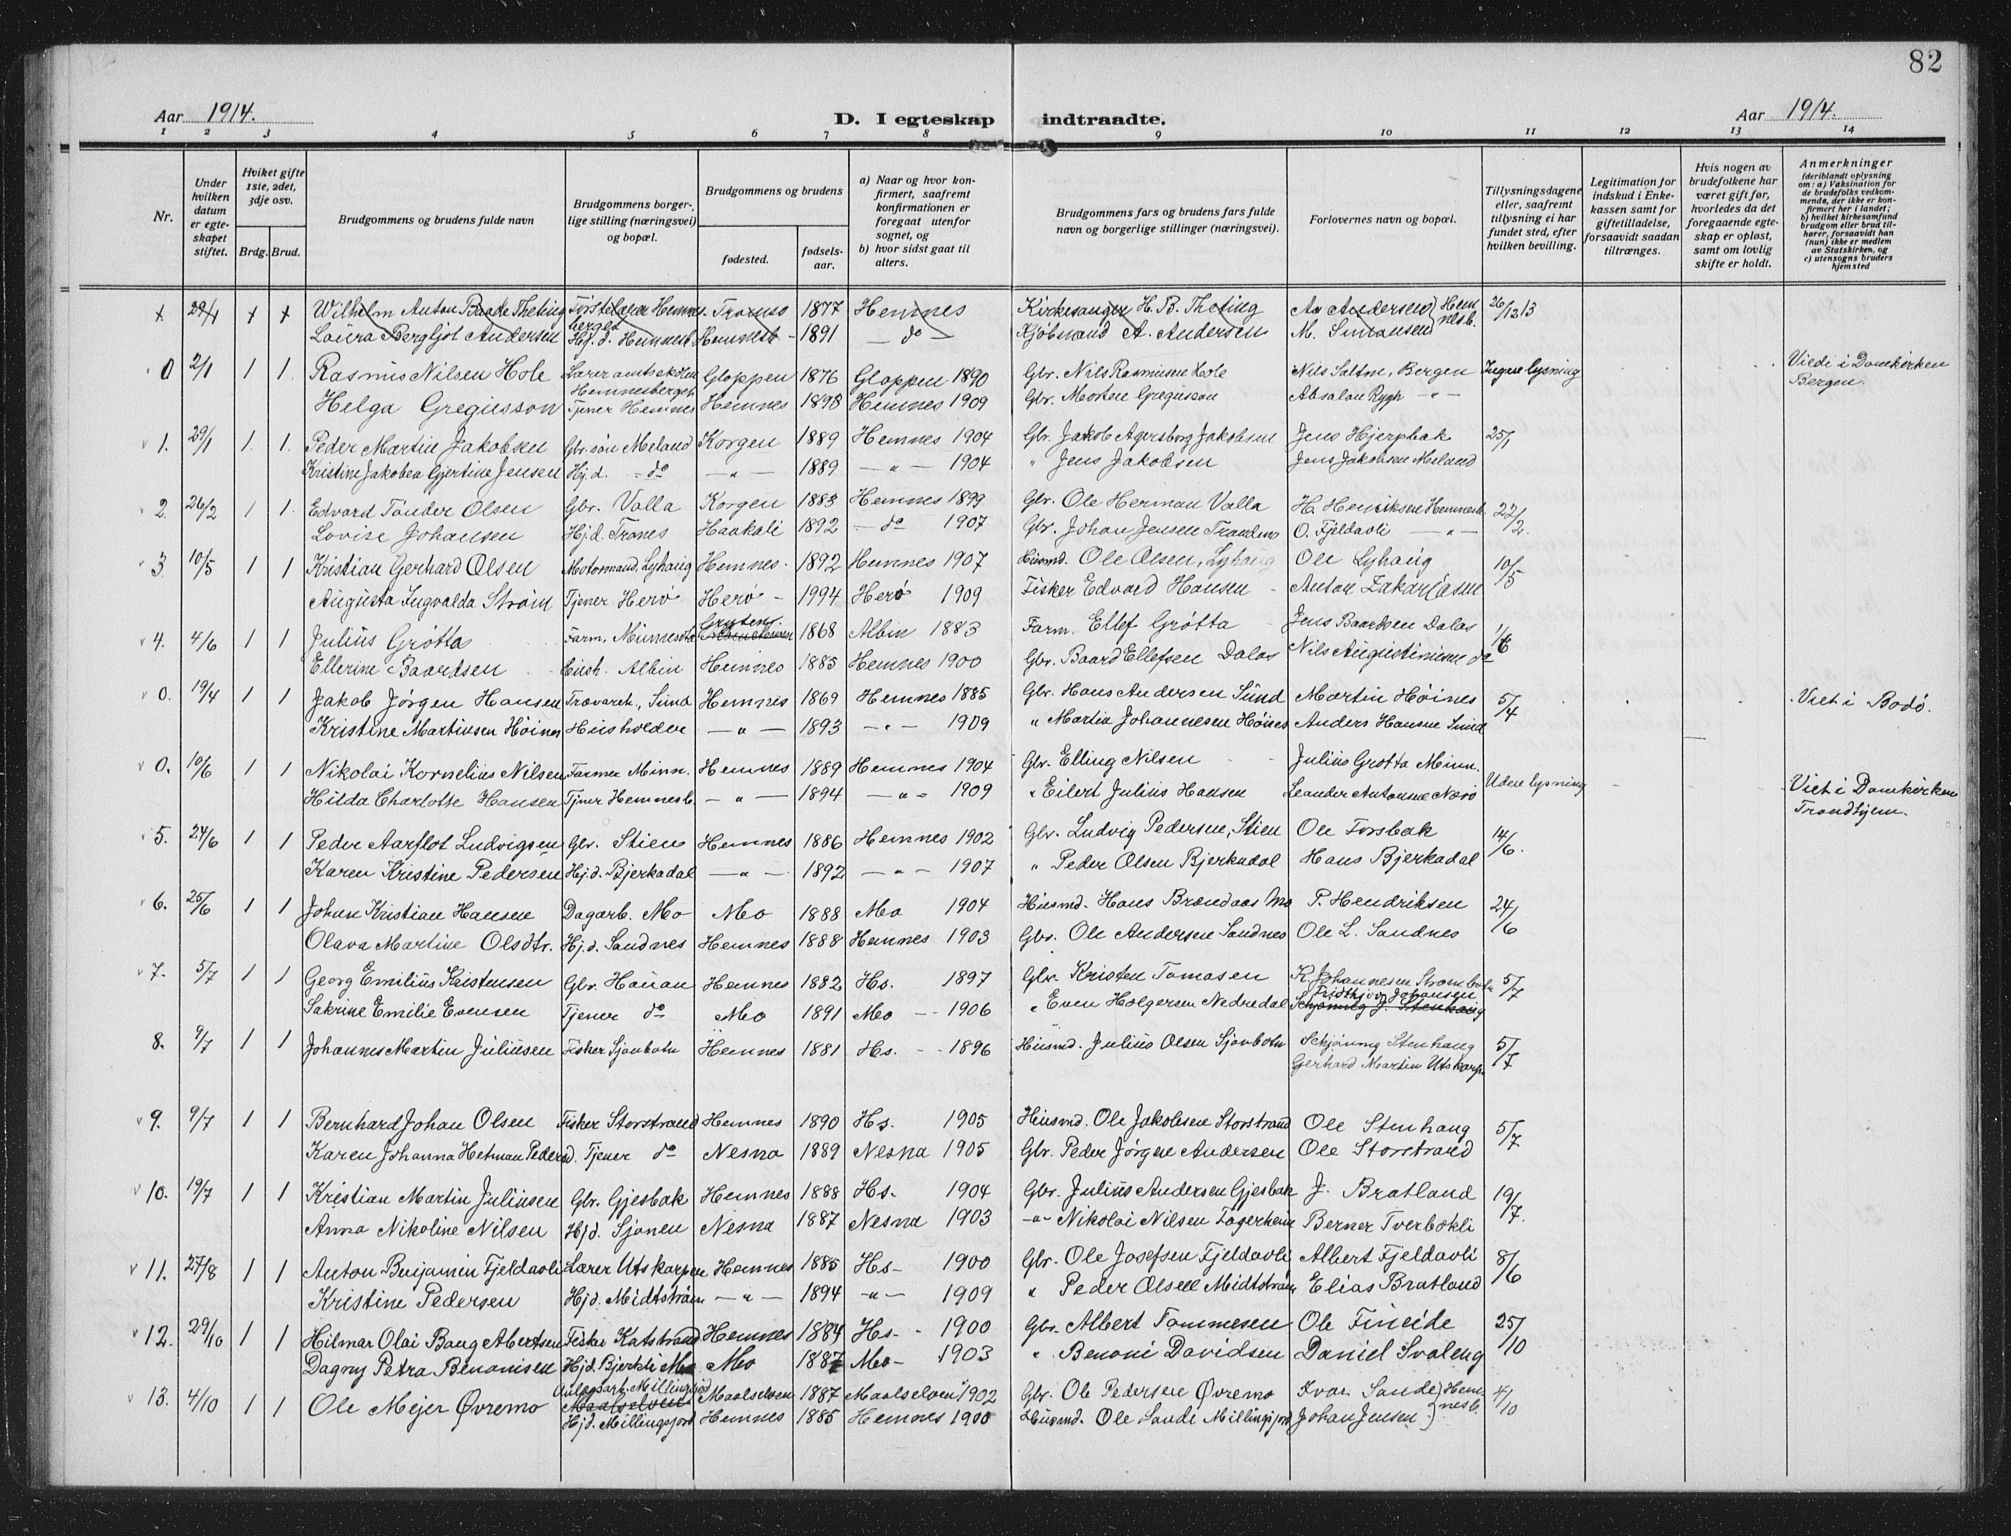 82
Aar 1914. D. I egteskap indtraadte. Aar 1914.
1 2 3 4 5 6 7 8 9 10 11 12 13 14
Nr.
Under hvilken datum er egteskapet stiftet.
Hviket gifte 1ste, 2det, 3dje osv.
Brdg. Brud.
Brudgommens og brudens fulde navn
Brudgommens borgerlige stilling (næringsvei) og bopæl.
Brudgommens og brudens
fødested.
fødselsaar.
a) Naar og hvor konfirmert, saafremt konfirmationen er foregaat utenfor sognet, og
b) hvor sidst gaat til alters.
Brudgommens fars og brudens fars fulde navn og borgerlige stillinger (næringsvei).
Forlovernes navn og bopæl.
Tillysningsdagene eller, saafremt tillysning ei har fundet sted, efter hvilken bevilling.
Legitimation for indskud i Enkekassen samt for giftetilladelse, forsaavidt saadan tiltrænges.
Hvis nogen av brudefolkene har været gift før, hvorledes da det foregaaende egteskap er opløst, samt om lovlig skifte er holdt.
Anmerkninger
(deriblandt oplysning om: a) Vaksination for de brudefolks vedkommende, der ikke er konfirmert her i landet; b) hvilket kirkesamfund brudgom eller brud tilhører, forsaavidt han (hun) ikke er medlem av Statskirken, og c) utensogns bruders hjemsted
Wilhelm Anton Baade Theting Tromsø 1877 Hemnes Kirkesanger H. B. Theting A. Andersen Hemnesb. 26/12 13
Laura Bergljot Andersen Hj.d. Hemnesb. Hemnesb. 1891 do Kjøbmand A. Andersen M. Simonsen
0 2/1 1 1 Rasmus Nilsen Hole Gloppen 1876 Gloppen 1890 Gbr. Nils Rasmussen Hole Nils Saltin, Bergen Ingen lysning Viedi i Domkirken Bergen.
Helga Gregusson Tjener Hemnes Hemnes 1898 Hemnes 1909 Gbr. Morten Gregusson Absalon Rygh
1. 29/1 1 1. Peder Martin Jakobsen Gbr. søn Meland Korgen 1889 Hemnes 1904 Gbr. Jakob Agersborg Jakobsen Jens Hjerpbak 25/1
Kristine Jakobea Gjertine Jensen Hj.d. do 1889 1904 Jens Jakobsen Jens Jakobsen Meland
2. 26/2 1 1 Edvard Tander Olsen Gbr. Valla Korgen 1883 Hemnes 1899 Gbr. Ole Herman Valla H. Henriksen Hemnesb. 22/2.
Lovise Johansen Hj.d. Tranes Haakali 1892 do 1907 Gbr. Johan Jensen O. Fjeldavli
3. 10/5 1 1 Kristian Gerhard Olsen Motormand, Lyhaug Hemnes 1892 Hemnes 1907 Husmd. Ole Olsen, Lyhaug Ole Lyhaug 10/5
Augusta Ingvalda Strøm Tjener Herø Herø 1994 Herø 1909 Fisker Edvard Hansen Anton Zakariasen
4. 4/6 1 1 Julius Grøtta Farm, Minnesota 1868 Albin 1883 Farm. Ellef Grøtta Jens Baardsen Dalas 1/6
Ellerine Baardsen Albin Hemnes 1885 Hemnes 1900 Gbr. Baard Ellefsen Dalas Nils Augustinusen do
0. 19/4 1 1 Jakob Jørgen Hansen Travarek, Sund Hemnes 1869 Hemnes 1885 Gbr. Hans Andersen Sund Martin Høines 5/4 Viet i Bodø.
Kristine Martinsen Høines Husholder 1893 1909 Martin Johannesen Høines Anders Hansen Sund
0. 10/6 1 1 Nikolai Kornelius Nilsen Farmer Minn. Hemnes 1889 Hemnes 1904 Gbr. Elling Nilsen Julius Grøtta Minn. Uden lysning Viet i Domkirken Trondhjem.
Hilda Charlotte Hansen Tjner Hemnesb. 1894 1909 Eilert Julius Hansen Leander Antonsen Nærø
5. 24/6 1 1 Peder Aarflot Ludvigsen Gbr. Stien Hemnes 1886 Hemnes 1902 Gbr. Ludvig Pedersen, Stien Ole Forsbak 14/6.
Karen Kristine Pedersen Hj.d. Bjerkadal 1892 1907 Peder Olsen Bjerkadal Hans Bjerkadal
6. 25/6 1 1 Johan Kristian Hansen Dagarb. Mo Mo 1888 Mo 1904 Husmd. Hans Brændaas Mo P. Hendriksen 24/6
Olava Martine Olsdtr. Hj.d. Sandnes Hemnes 1888 Hemnes 1903 Gbr. Ole Andersen Sandnes Ole L. Sandnes
7. 5/7 1 1 Georg Emilius Kristensen Gbr. Hauan Hemnes 1882 Hs. 1897 Gbr. Kristen Tomasen K. Johannesen Strombotn 5/7
Sakrine Emilie Evensen Tjener do Mo 1891 Mo 1906 Even Holgersen Nedredal Fridthjov Johansen
8. 9/7 1 1 Johannes Martin Juliusen Fisker Sjonbotn Hemnes 1881 Hs. 1896 Husmd. Julius Olsen Sjonbotn Schjønning Stenhaug 5/7
Gerhard Martin Utskarpe
9. 9/7 1 1 Bernhard Johan Olsen Fisker Storstrand Hemnes 1890 Hs. 1905 Husmd. Ole Jakobsen Storstrand Ole Stenhaug 5/7
Karen Johanna Hetman Pedersd. Tjener do Nesna 1889 Nesna 1905 Gbr. Peder Jørgen Andersen Ole Storstrand
10. 19/7 1 1 Kristian Martin Juliusen Gbr. Gjesbak Hemnes 1888 Hs. 1904 Gbr. Julius Andersen Gjesbak J. Bratland 19/7.
Anna Nikoline Nilsen Hjd. Sjonen Nesna 1887 Nesna 1903 Nikolai Nilsen Fagerheim Berner Tverbækli
11. 27/8 1 1 Anton Benjamin Fjeldavli Lærer Utskarpen Hemnes 1885 Hs 1900 Gbr. Ole Josefsen Fjeldavli Albert Fjeldavli 8/6
Kristine Pedersen Hj.d. Midtstrøm 1894 1909 Peder Olsen Midtstrøm Elias Bratland
12. 29/10 1 1 Hilmar Olai Baug Abertsen Fisker Katstrand Hemnes 1884 Hs. 1900 Gbr. Albert Tommesen Ole Fineide 25/10
Dagny Petra Benonisen Hj.d. Bjerkli Mo Mo 1887 Mo 1903 Benoni Davidsen Daniel Svaleng
13. 4/10 1 1 Ole Mejer Øvremo Anlægsarb. Millingsjord Maalselven Maalselven 1887 Maalselven 1902 Gbr. Ole Pedersen Øvremo Ivar Sande Hemnesb. 4/10
Hj.d. Millingsjord Hemnes 1885 Hemnes 1900 Husmd. Ole Sandi Millingsjord Johan Jensen